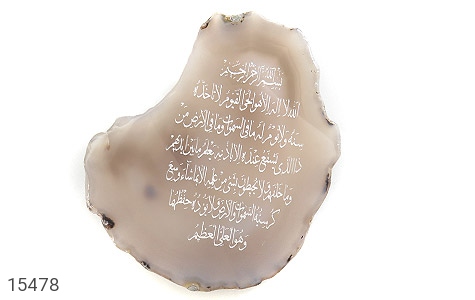 بسم الله الرحمن الرحیم
الله لا اله الا هو الحی القیوم لا تاخذه
سنة ولا نوم له ما فی السموات وما فی الارض من
ذا الذی یشفع عنده الا باذنه یعلم ما بین ایدیهم
وما خلفهم ولا یحیطون بشیء من علمه الا بما شاء وسع
کرسیه السموات والارض ولا یؤده حفظهما
وهو العلی العظیم
15478